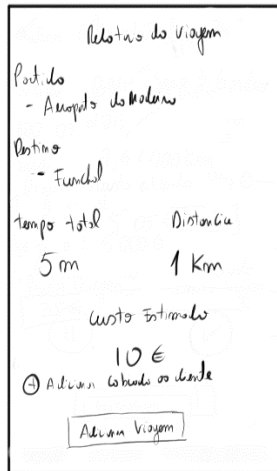 Relatorio da Viagem
Partida
- Aeroporto da Madeira
Destino
- Funchal
tempo total Distancia
5 m 1 Km
Custo Estimado
10 €
+ Adicionar cobrado ao cliente
Adicionar Viagem